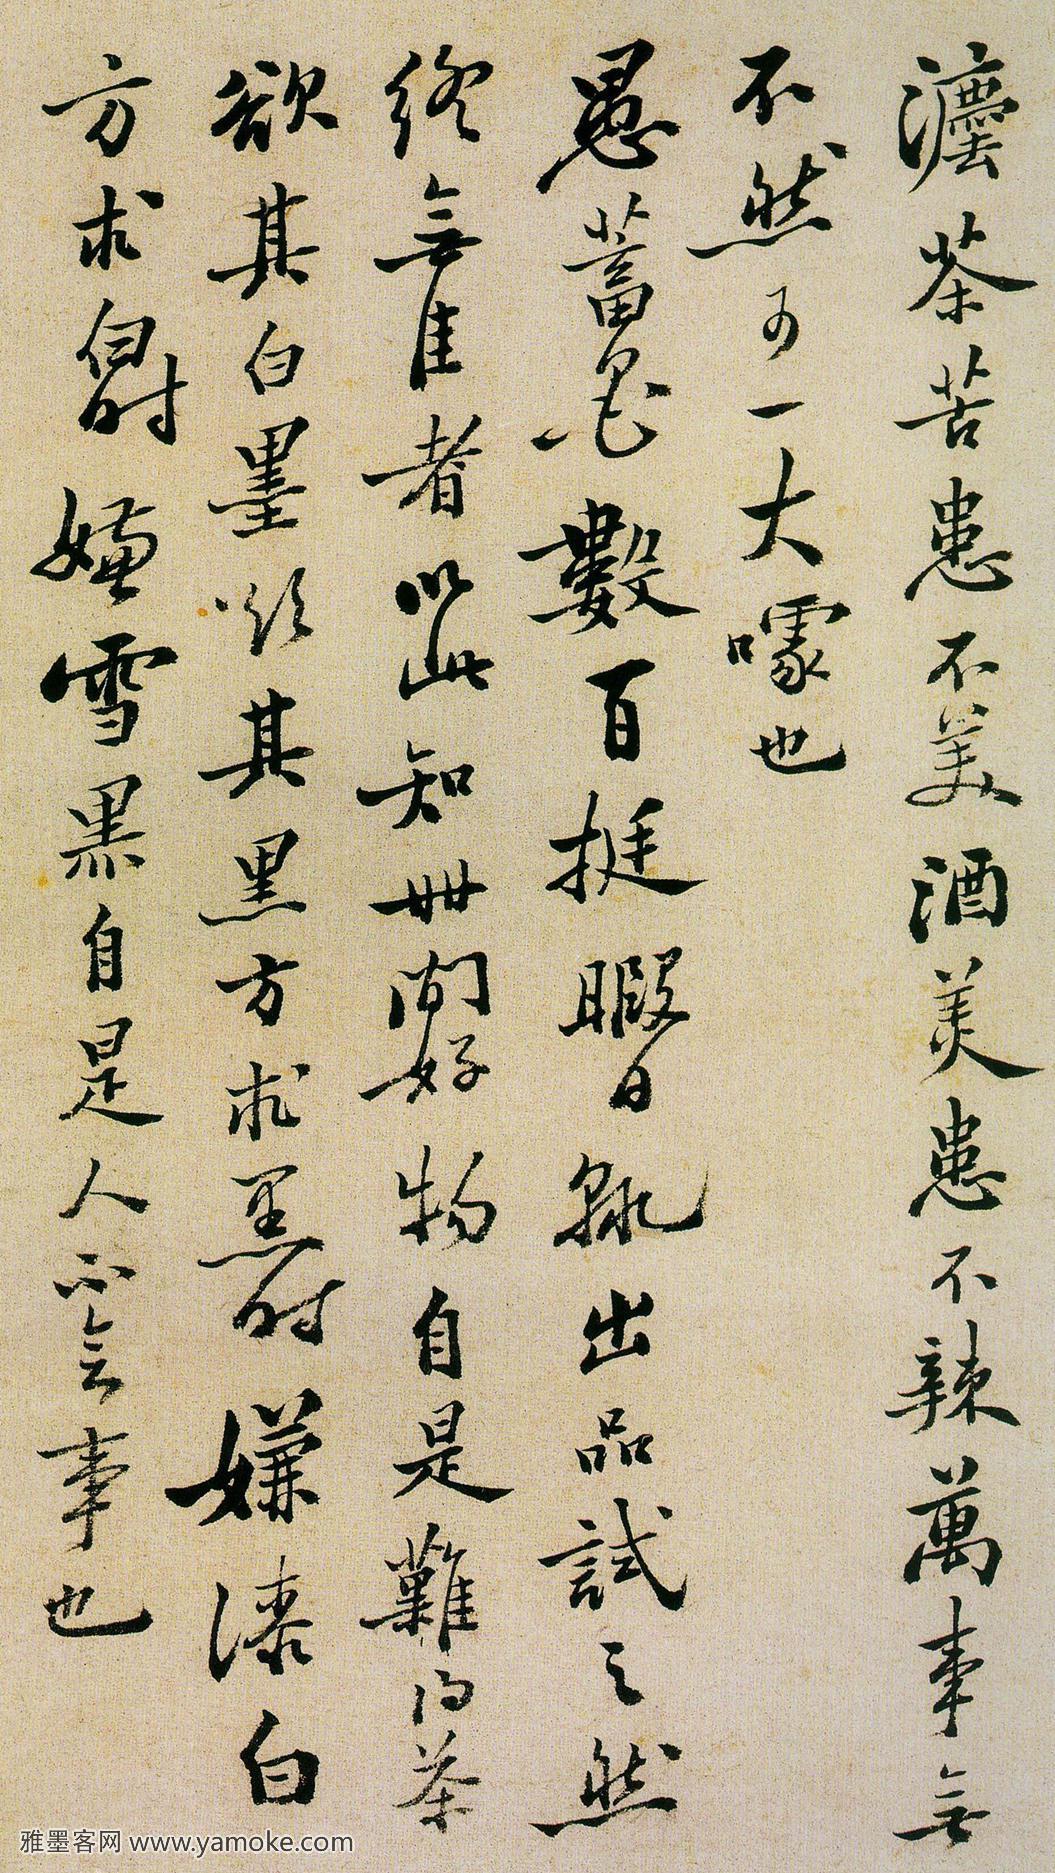 灋茶苦患不美酒美患不辣萬事無
不然可一大噱也
愚蓄墨數百挺暇日輒出品試之然
終無佳者以此知世間好物自是難得茶
欲其白墨欲其黑方求黑時嫌漆白
方求白時嫌雪黑自是人不會事也
雅墨客网 www.yamoke.com